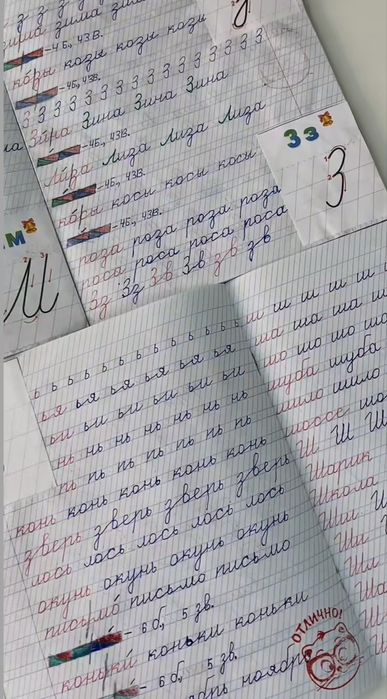 зима зима зим
– 4 б., 4 зв.
козы козы козы козы
– 4 б., 4 зв.
З З З З З З З З З З З З З
Зина Зина Зина Зина
– 4 б., 4 зв.
Лиза Лиза Лиза Лиза
– 4 б., 4 зв.
косы косы косы косы
– 4 б., 4 зв.
поза поза поза поза
роса роса роса роса
Зз Зз Зв Зв зв зв
Зз
З
М
ь ь ь ь ь ь ь ь ь ь ь ь
ья ья ья ья ья ья ья
ьи ьи ьи ьи ьи ьи ьи
нь нь нь нь нь нь нь
пь пь пь пь пь пь пь
конь конь конь конь конь
зверь зверь зверь зверь
лось лось лось лось лось
окунь окунь окунь окунь
письмо письмо письмо
– 6 б., 5 зв.
коньки коньки коньки
– 6 б., 5 зв.
ноябр
ш ш ш ш ш ш
ша ша ша ша
шо шо шо шо
шуба шуба
шило шило
шоссе шо
Ш Ш Ш
Шарик
Школа
Ши
Ши
ОТЛИЧНО!